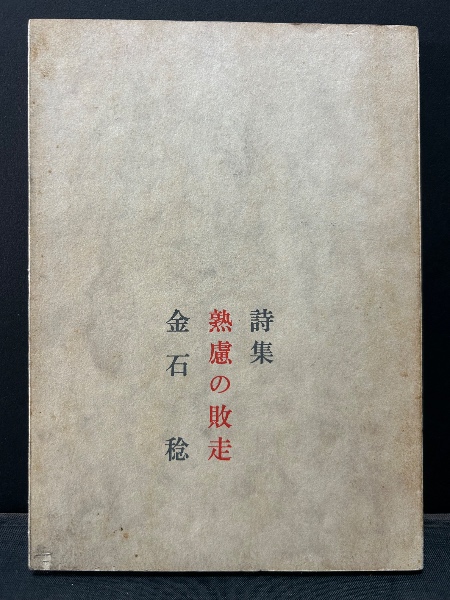 詩集
熟慮の敗走
金石稔